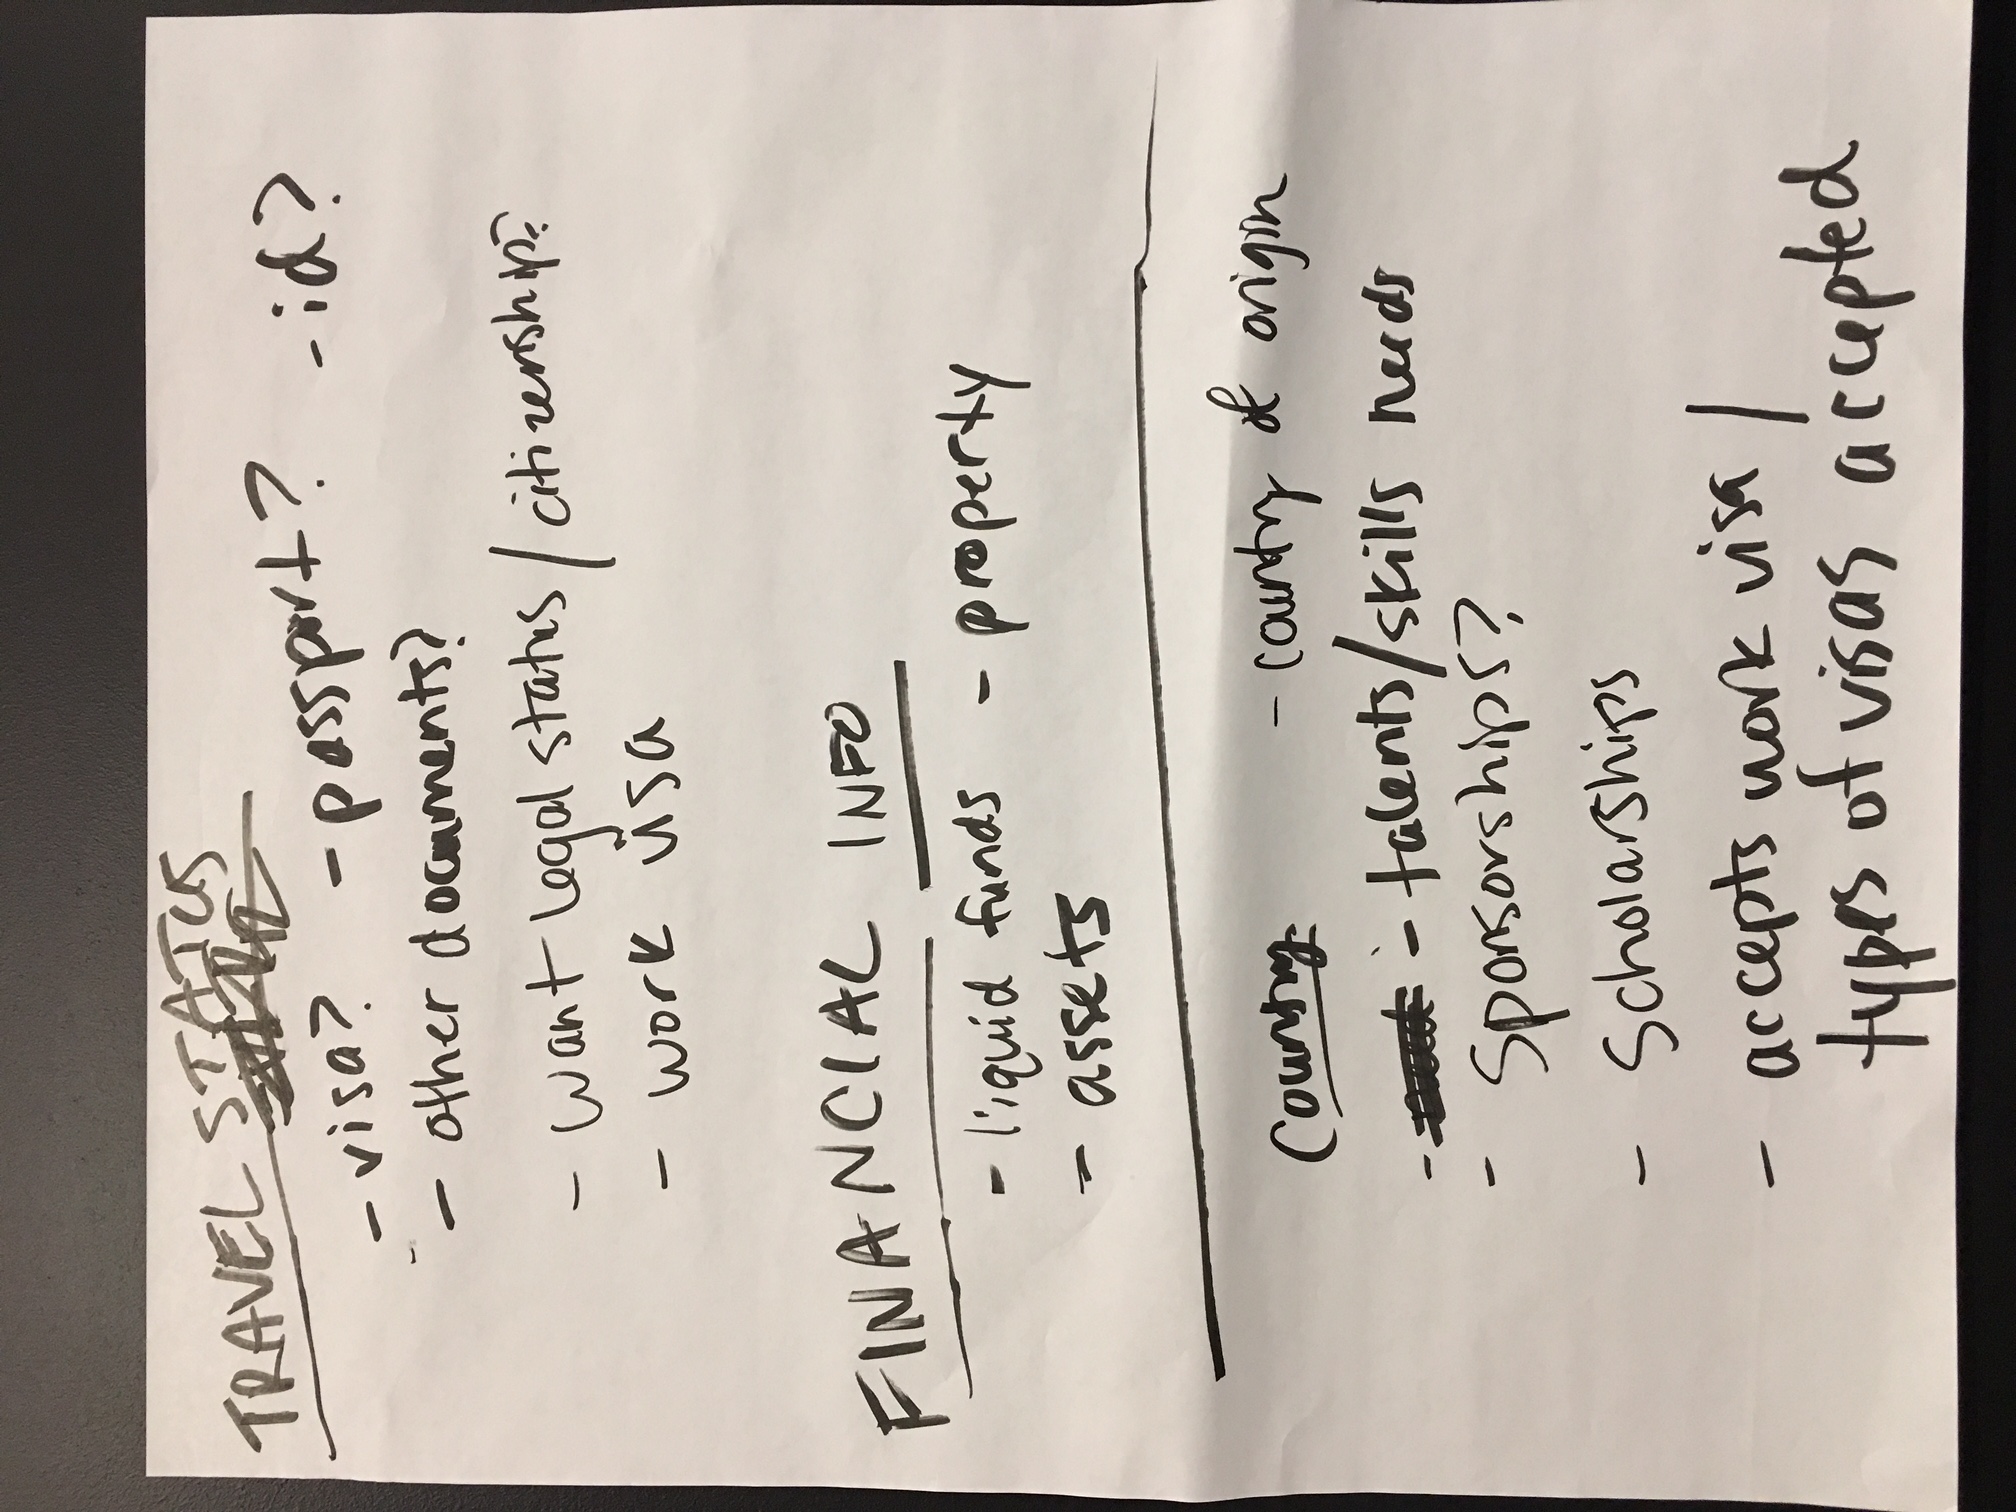 TRAVEL STATUS
- visa? - passport? - id?
- other documents?
- want legal status / citizenship?
- work visa
FINANCIAL INFO
- liquid funds - property
- assets
Country - country of origin
- - talents/skills needs
- Sponsorships?
- Scholarships
- accepts work visa /
types of visas accepted